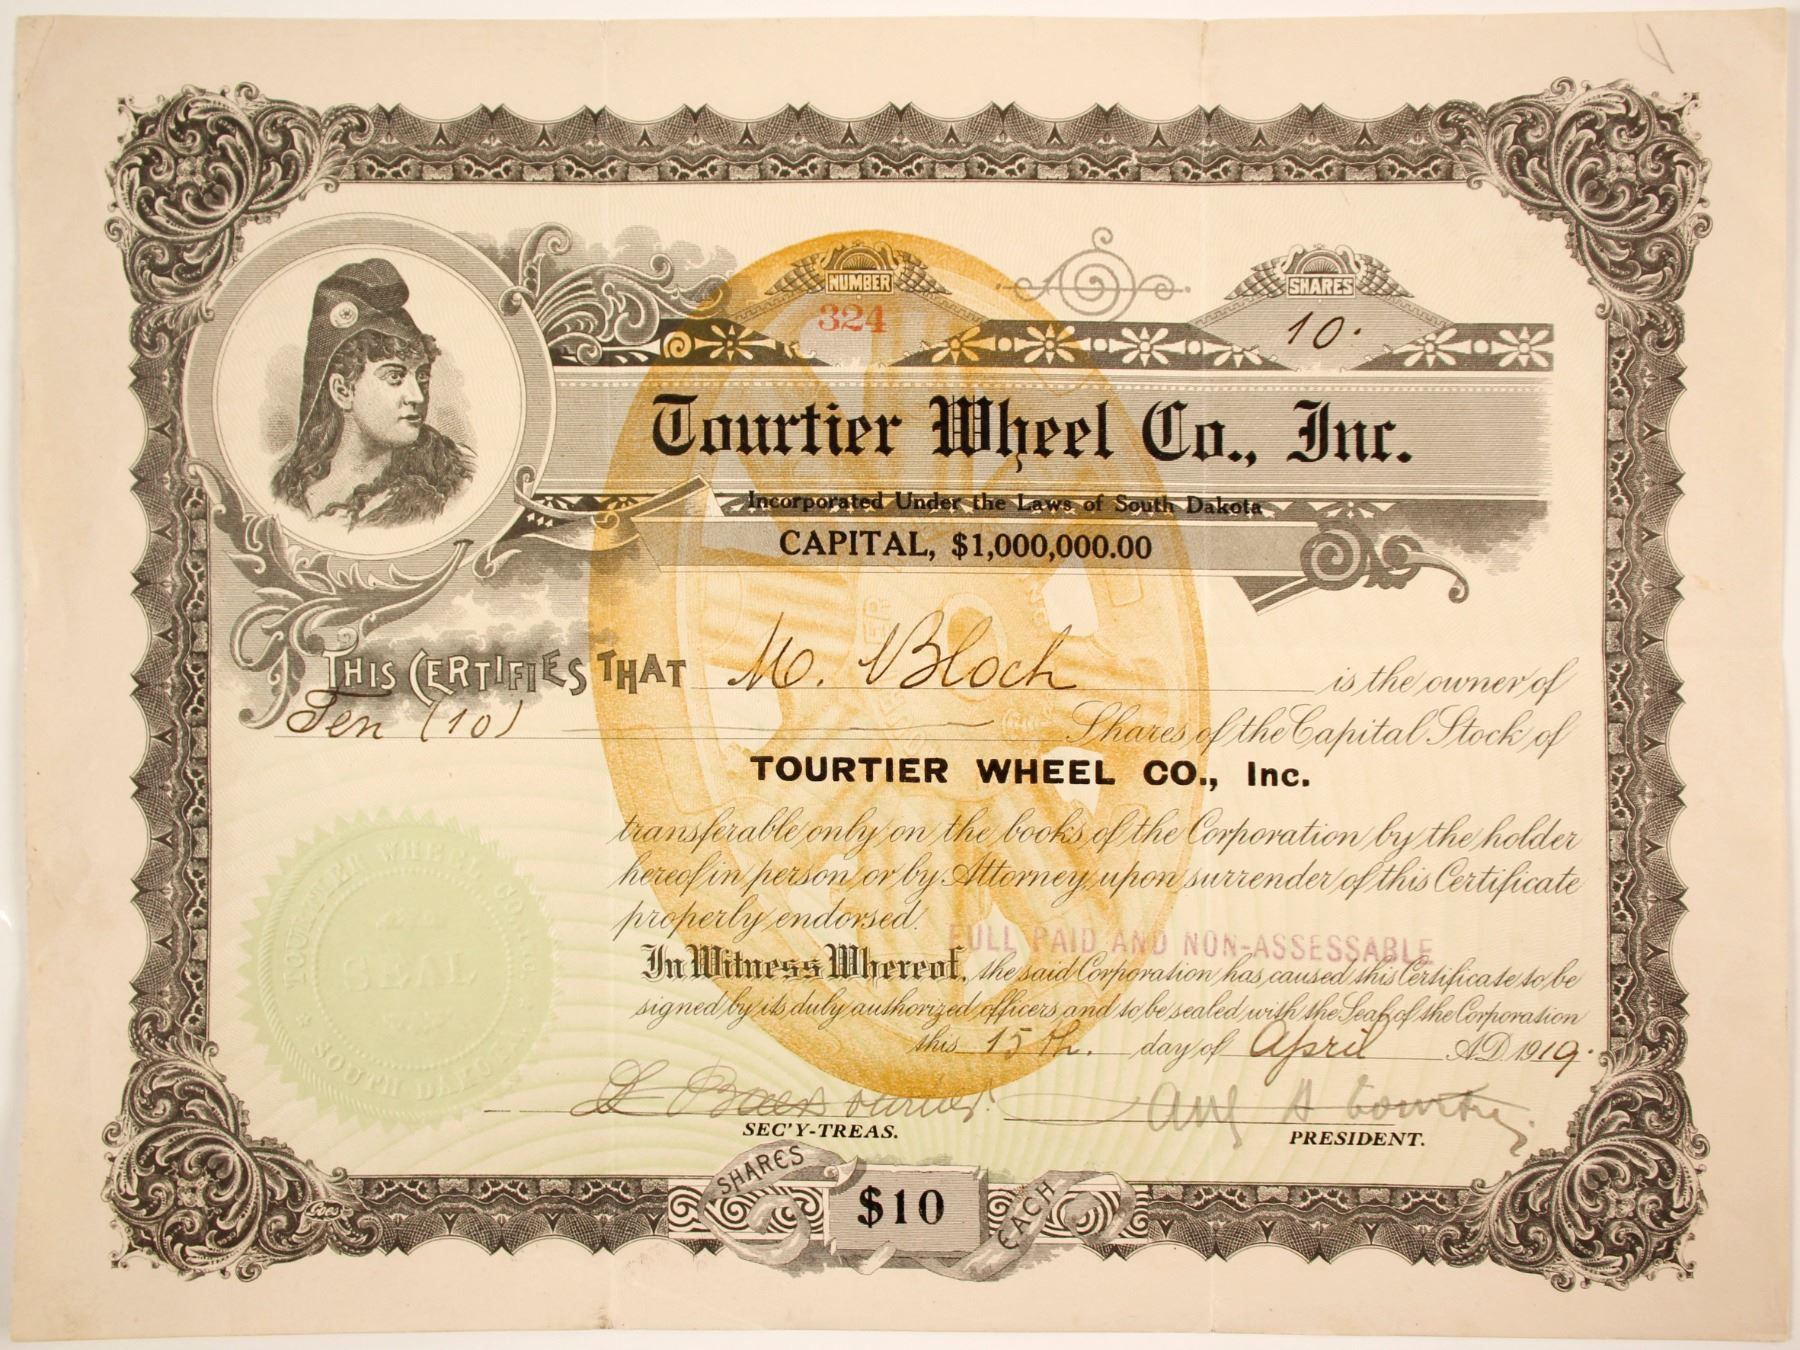 NUMBER
324
SHARES
10.
Tourtier Wheel Co., Inc.
Incorporated Under the Laws of South Dakota
CAPITAL, $1,000,000.00
THIS CERTIFIES THAT M. Bloch is the owner of
Ten (10) Shares of the Capital Stock of
TOURTIER WHEEL CO., Inc.
transferable only on the books of the Corporation by the holder
hereof in person or by Attorney upon surrender of this Certificate
properly endorsed.
FULL PAID AND NON-ASSESSABLE
In Witness Whereof, the said Corporation has caused this Certificate to be
signed by its duly authorized officers and to be sealed with the Seal of the Corporation
this 15th. day of April A.D. 1919.
SEC'Y-TREAS.
PRESIDENT.
TOURTIER WHEEL CO., INC.
SEAL
SOUTH DAKOTA
SHARES
$10
EACH
Goes